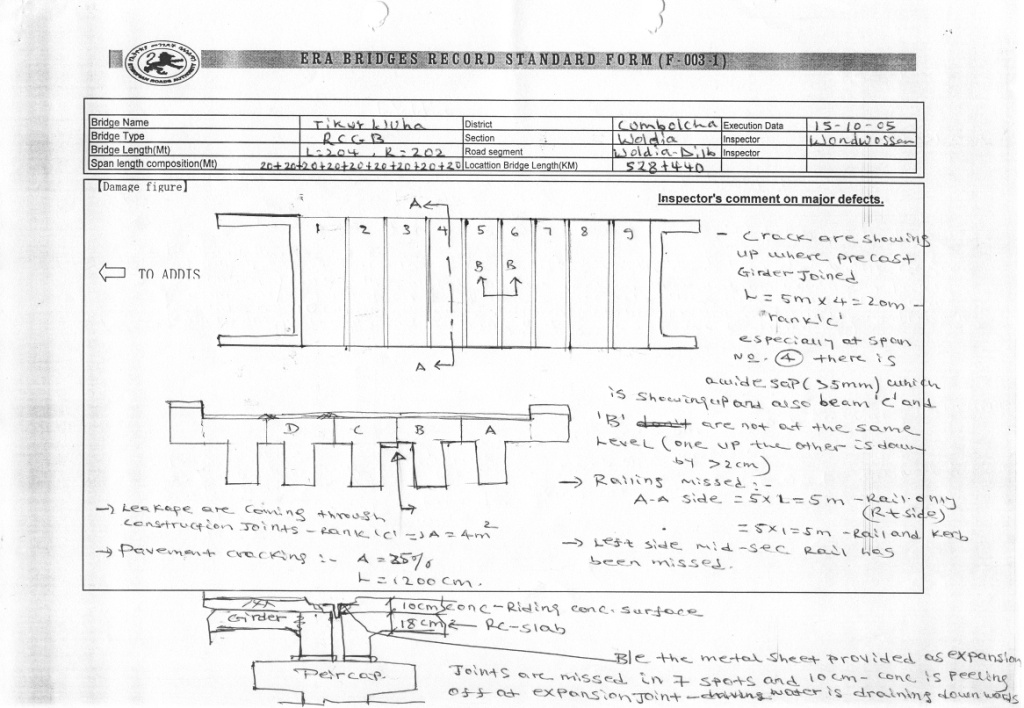 ERA BRIDGES RECORD STANDARD FORM (F-003-1)
Bridge Name Tikur Wuha District Combolcha Execution Data 15-10-05
Bridge Type RCGB Section Woldia Inspector Wondwossen
Bridge Length(Mt) L=204, R=202 Road segment Woldia-Dilb Inspector
Span length composition(Mt) 20+20+20+20+20+20+20+20+20 Locattion Bridge Length(KM) 528+440
[Damage figure]
Inspector's comment on major defects.
A
1 2 3 4 5 6 7 8 9
B B
TO ADDIS
A
- Crack are showing
up where precast
Girder Joined
L = 5m x 4 = 20m -
"rank 'c'
especially at span
No. 4 there is
a wide gap (>5mm) which
is showing up and also beam 'c' and
'B' are not at the same
Level (one up the other is down
by >2cm)
→ Railing missed :-
A-A side = 5x1=5m - Rail only
(Rt side)
= 5x1=5m - Rail and Kerb
→ Left side mid-sec Rail has
been missed.
D C B A
→ Leakage are coming through
construction Joints - Rank 'c' => A = 4m²
→ Pavement cracking :- A = 35%
L = 1200cm.
10cm conc - Riding conc. surface
Girder
18cm ← RC-slab
Peircap.
B/c the metal sheet provided as expansion
Joints are missed in 7 spots and 10cm- conc is peeling
off at expansion Joint - water is draining downwards